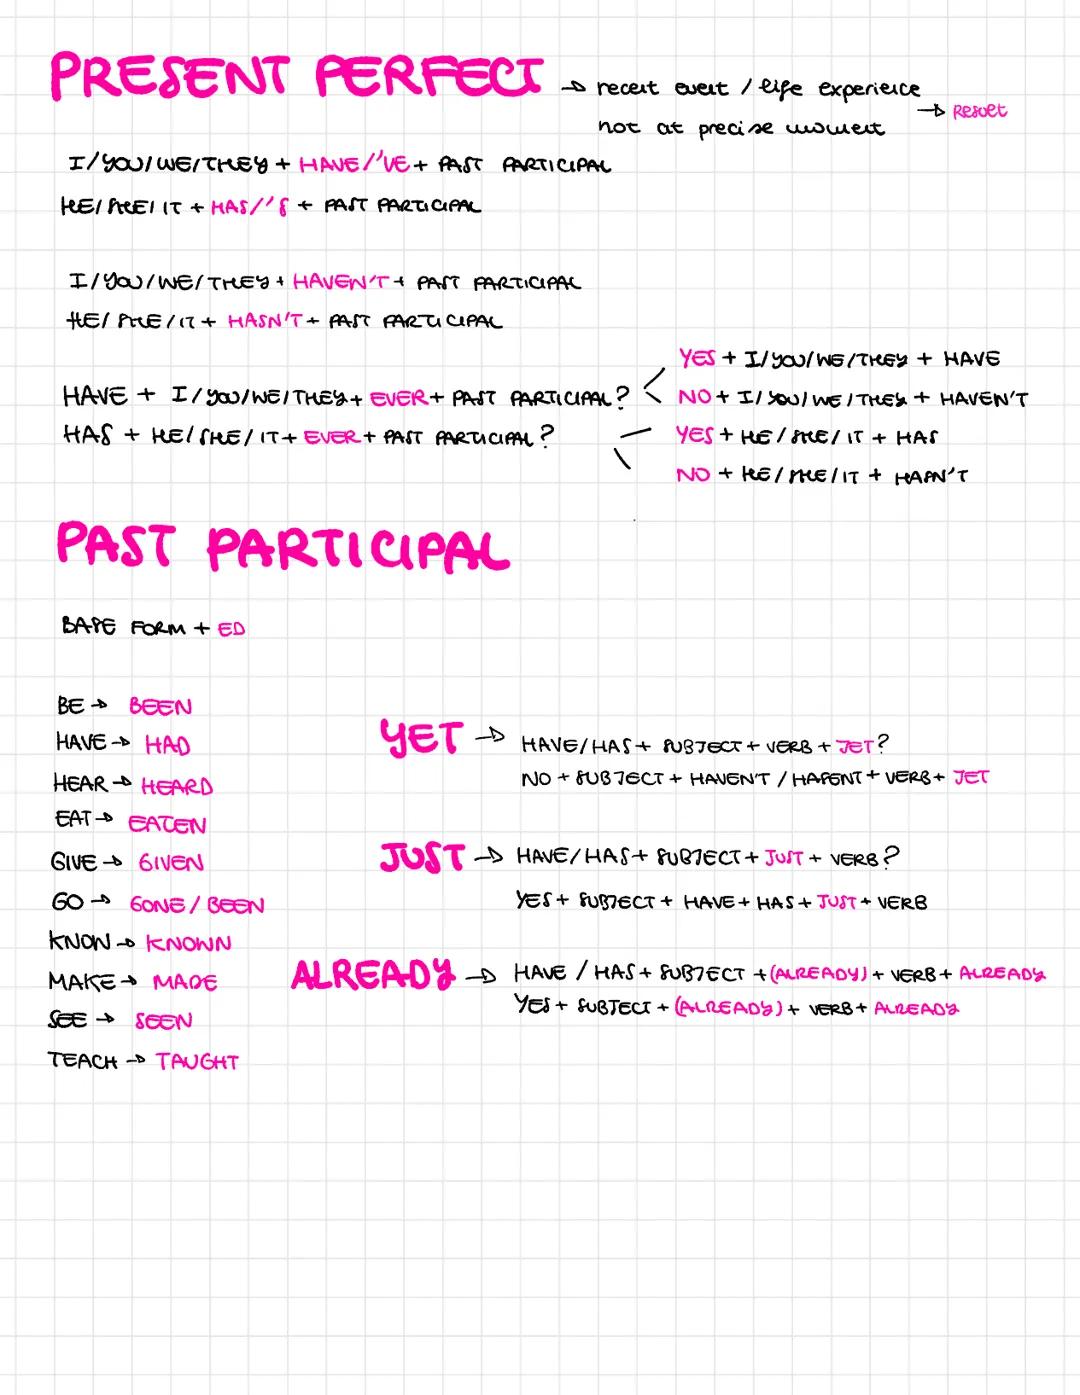 PRESENT PERFECT → recent event / life experience → Result
not at precise moment
I/YOU/WE/THEY + HAVE/'VE + PAST PARTICIPAL
HE/SHE/IT + HAS/'S + PAST PARTICIPAL
I/YOU/WE/THEY + HAVEN'T + PAST PARTICIPAL
HE/SHE/IT + HASN'T + PAST PARTICIPAL
YES + I/YOU/WE/THEY + HAVE
HAVE + I/YOU/WE/THEY + EVER + PAST PARTICIPAL? NO + I/YOU/WE/THEY + HAVEN'T
HAS + HE/SHE/IT + EVER + PAST PARTICIPAL? YES + HE/SHE/IT + HAS
NO + HE/SHE/IT + HASN'T
PAST PARTICIPAL
BASE FORM + ED
BE → BEEN
HAVE → HAD
HEAR → HEARD
EAT → EATEN
GIVE → GIVEN
GO → GONE / BEEN
KNOW → KNOWN
MAKE → MADE
SEE → SEEN
TEACH → TAUGHT
YET → HAVE/HAS + SUBJECT + VERB + JET?
NO + SUBJECT + HAVEN'T / HASENT + VERB + JET
JUST → HAVE/HAS + SUBJECT + JUST + VERB?
YES + SUBJECT + HAVE + HAS + JUST + VERB
ALREADY → HAVE / HAS + SUBJECT + (ALREADY) + VERB + ALREADY
YES + SUBJECT + (ALREADY) + VERB + ALREADY